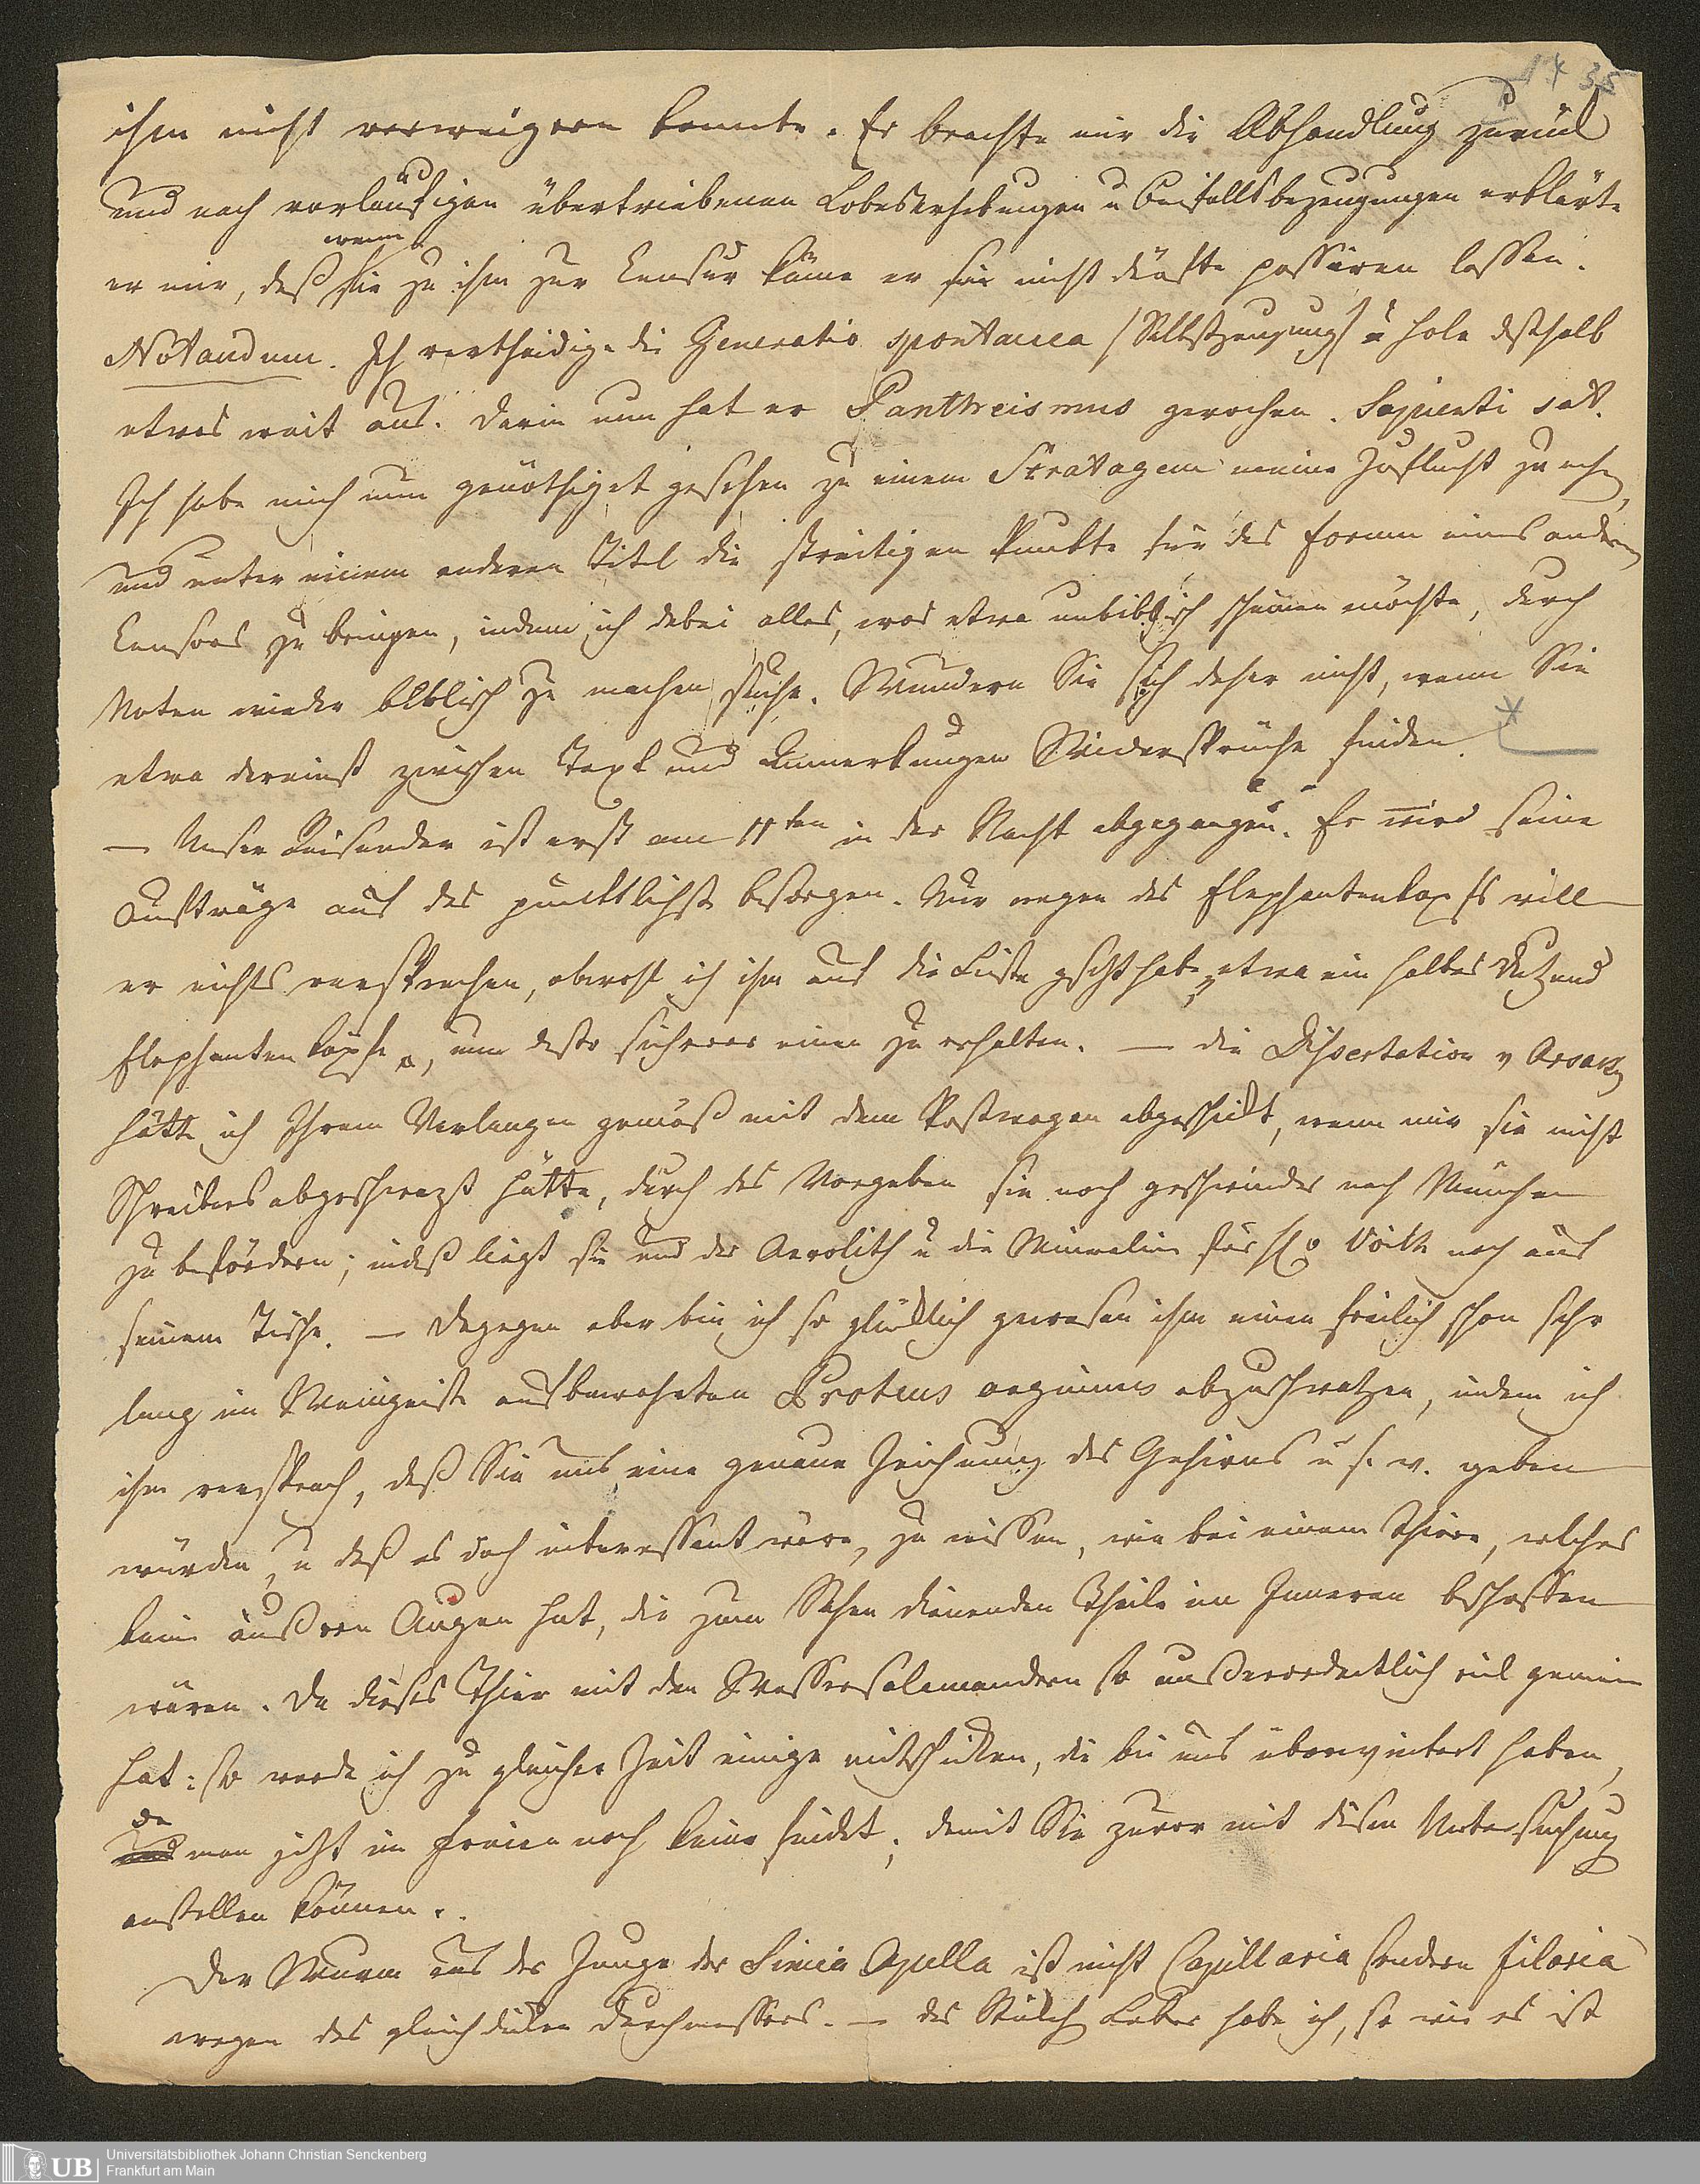 14 35
ihm nicht verweigern konnte. Er brachte mir die Abhandlung zurück
und nach vorläufigen übertriebenen Lobeserhebungen u Beifallsbezeugungen erklärte
wenn
er mir, daß sie zu ihm zur Censur käme er sie nicht dürfte passiren lassen.
Notandum. Ich vertheidige die Generatio spontanea /Selbstzeugung/ u hole deßhalb
etwas weit aus. Darin nun hat er Pantheismus gerochen. Sapienti sat.
Ich habe mich nun genöthiget gesehen zu einem Stratagem meine Zuflucht zu nehmen,
und unter einem anderen Titel die streitigen Punkte für das Forum eines andern
Censors zu bringen, indem ich dabei alles, was etwa unbiblisch scheinen möchte, durch
Noten wieder biblisch zu machen suche. Wundern Sie sich daher nicht, wenn Sie
etwa dereinst zwischen Text und Anmerkungen Widersprüche finden.
— Unser Reisender ist erst am 11ten in der Nacht abgegangen. Er wird seine
Aufträge auf das pünktlichste besorgen. Nur wegen des Elephantenkopfs will
er nichts versprechen, obwohl ich ihm auf die Liste gesetzt habe, etwa ein halbes Dutzend
Elephantenköpfe, um desto sicherer einen zu erhalten. — Die Dissertation v Arsaky
hätte ich Ihrem Verlangen gemäß mit dem Postwagen abgeschickt, wenn mir sie nicht
Schreibers abgeschwazt hätte, durch das Vorgeben sie noch geschwinder nach München
zu befördern; indeß liegt sie und der Aerolith u die Mineralien für H v Voith noch auf
seinem Tische. — Dagegen aber bin ich so glücklich gewesen ihm einen freilich schon sehr
lang im Weingeiste aufbewahrten Proteus anguinus abzuschwatzen, indem ich
ihm versprach, daß Sie uns eine genaue Zeichnung des Gehirns u s. w. geben
würden, u daß es doch interessant wäre, zu wissen, wie bei einem Thiere, welches
keine äußeren Augen hat, die zum Sehen dienenden Theile im Inneren beschaffen
wären. Da dieses Thier mit den Wassersalamandern so außerordentlich viel gemein
hat: so werde ich zu gleicher Zeit einige mitschicken, die bei uns überwintert haben,
da
man jetzt im Freien noch keine findet; damit Sie zuvor mit diesen Untersuchung
anstellen können.
Der Wurm aus der Zunge der Simia Apella ist nicht Capillaria sondern Filaria
wegen des gleich dicken Durchmessers. — Das Stück Leber habe ich, so wie es ist
UB
Universitätsbibliothek Johann Christian Senckenberg
Frankfurt am Main